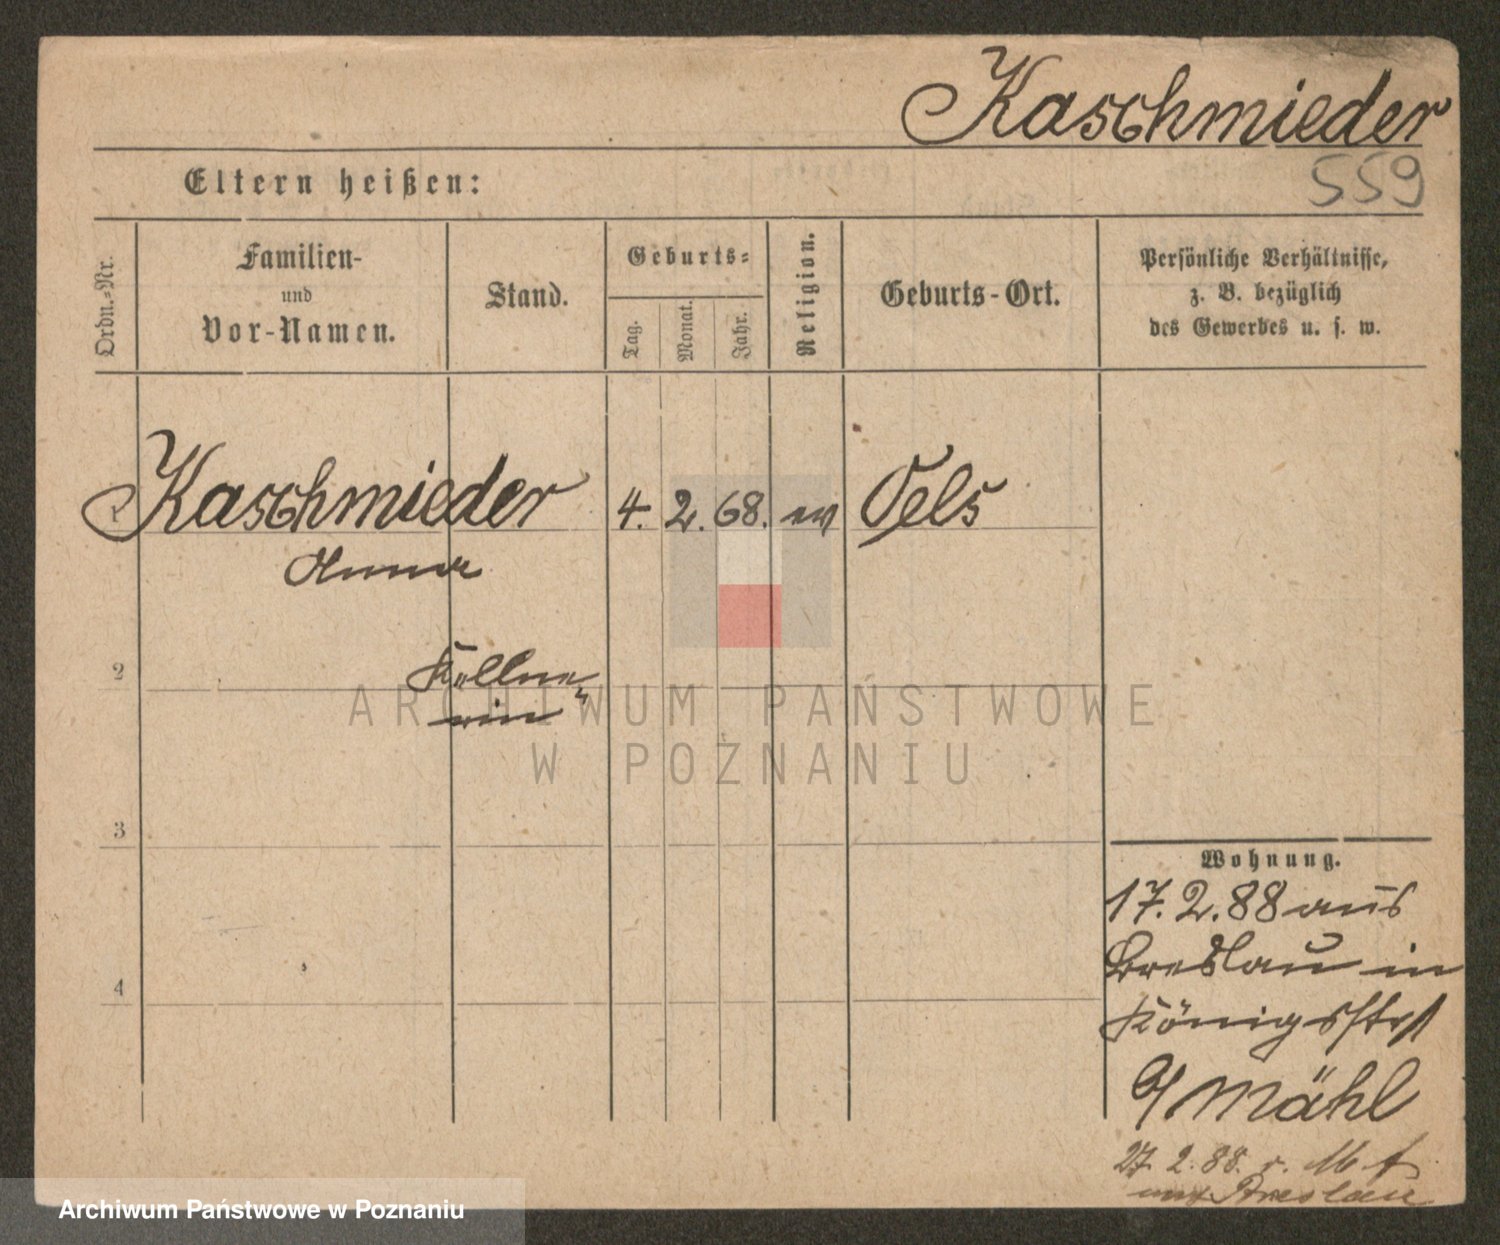 Kaschmieder
559
Eltern heißen:
Ordn.-Nr.
Familien-
und
Vor-Namen.
Stand.
Geburts-
Tag.
Monat.
Jahr.
Religion.
Geburts-Ort.
Persönliche Verhältnisse,
z. B. bezüglich
des Gewerbes u. s. w.
1 Kaschmieder 4. 2. 68. ev Oels
Anna
2 Kellne-
rin
ARCHIWUM PAŃSTWOWE
W POZNANIU
3
4
Wohnung.
17. 2. 88 aus
Breslau in
Königsstr
Mähl
27. 2. 88.
nach Breslau
Archiwum Państwowe w Poznaniu